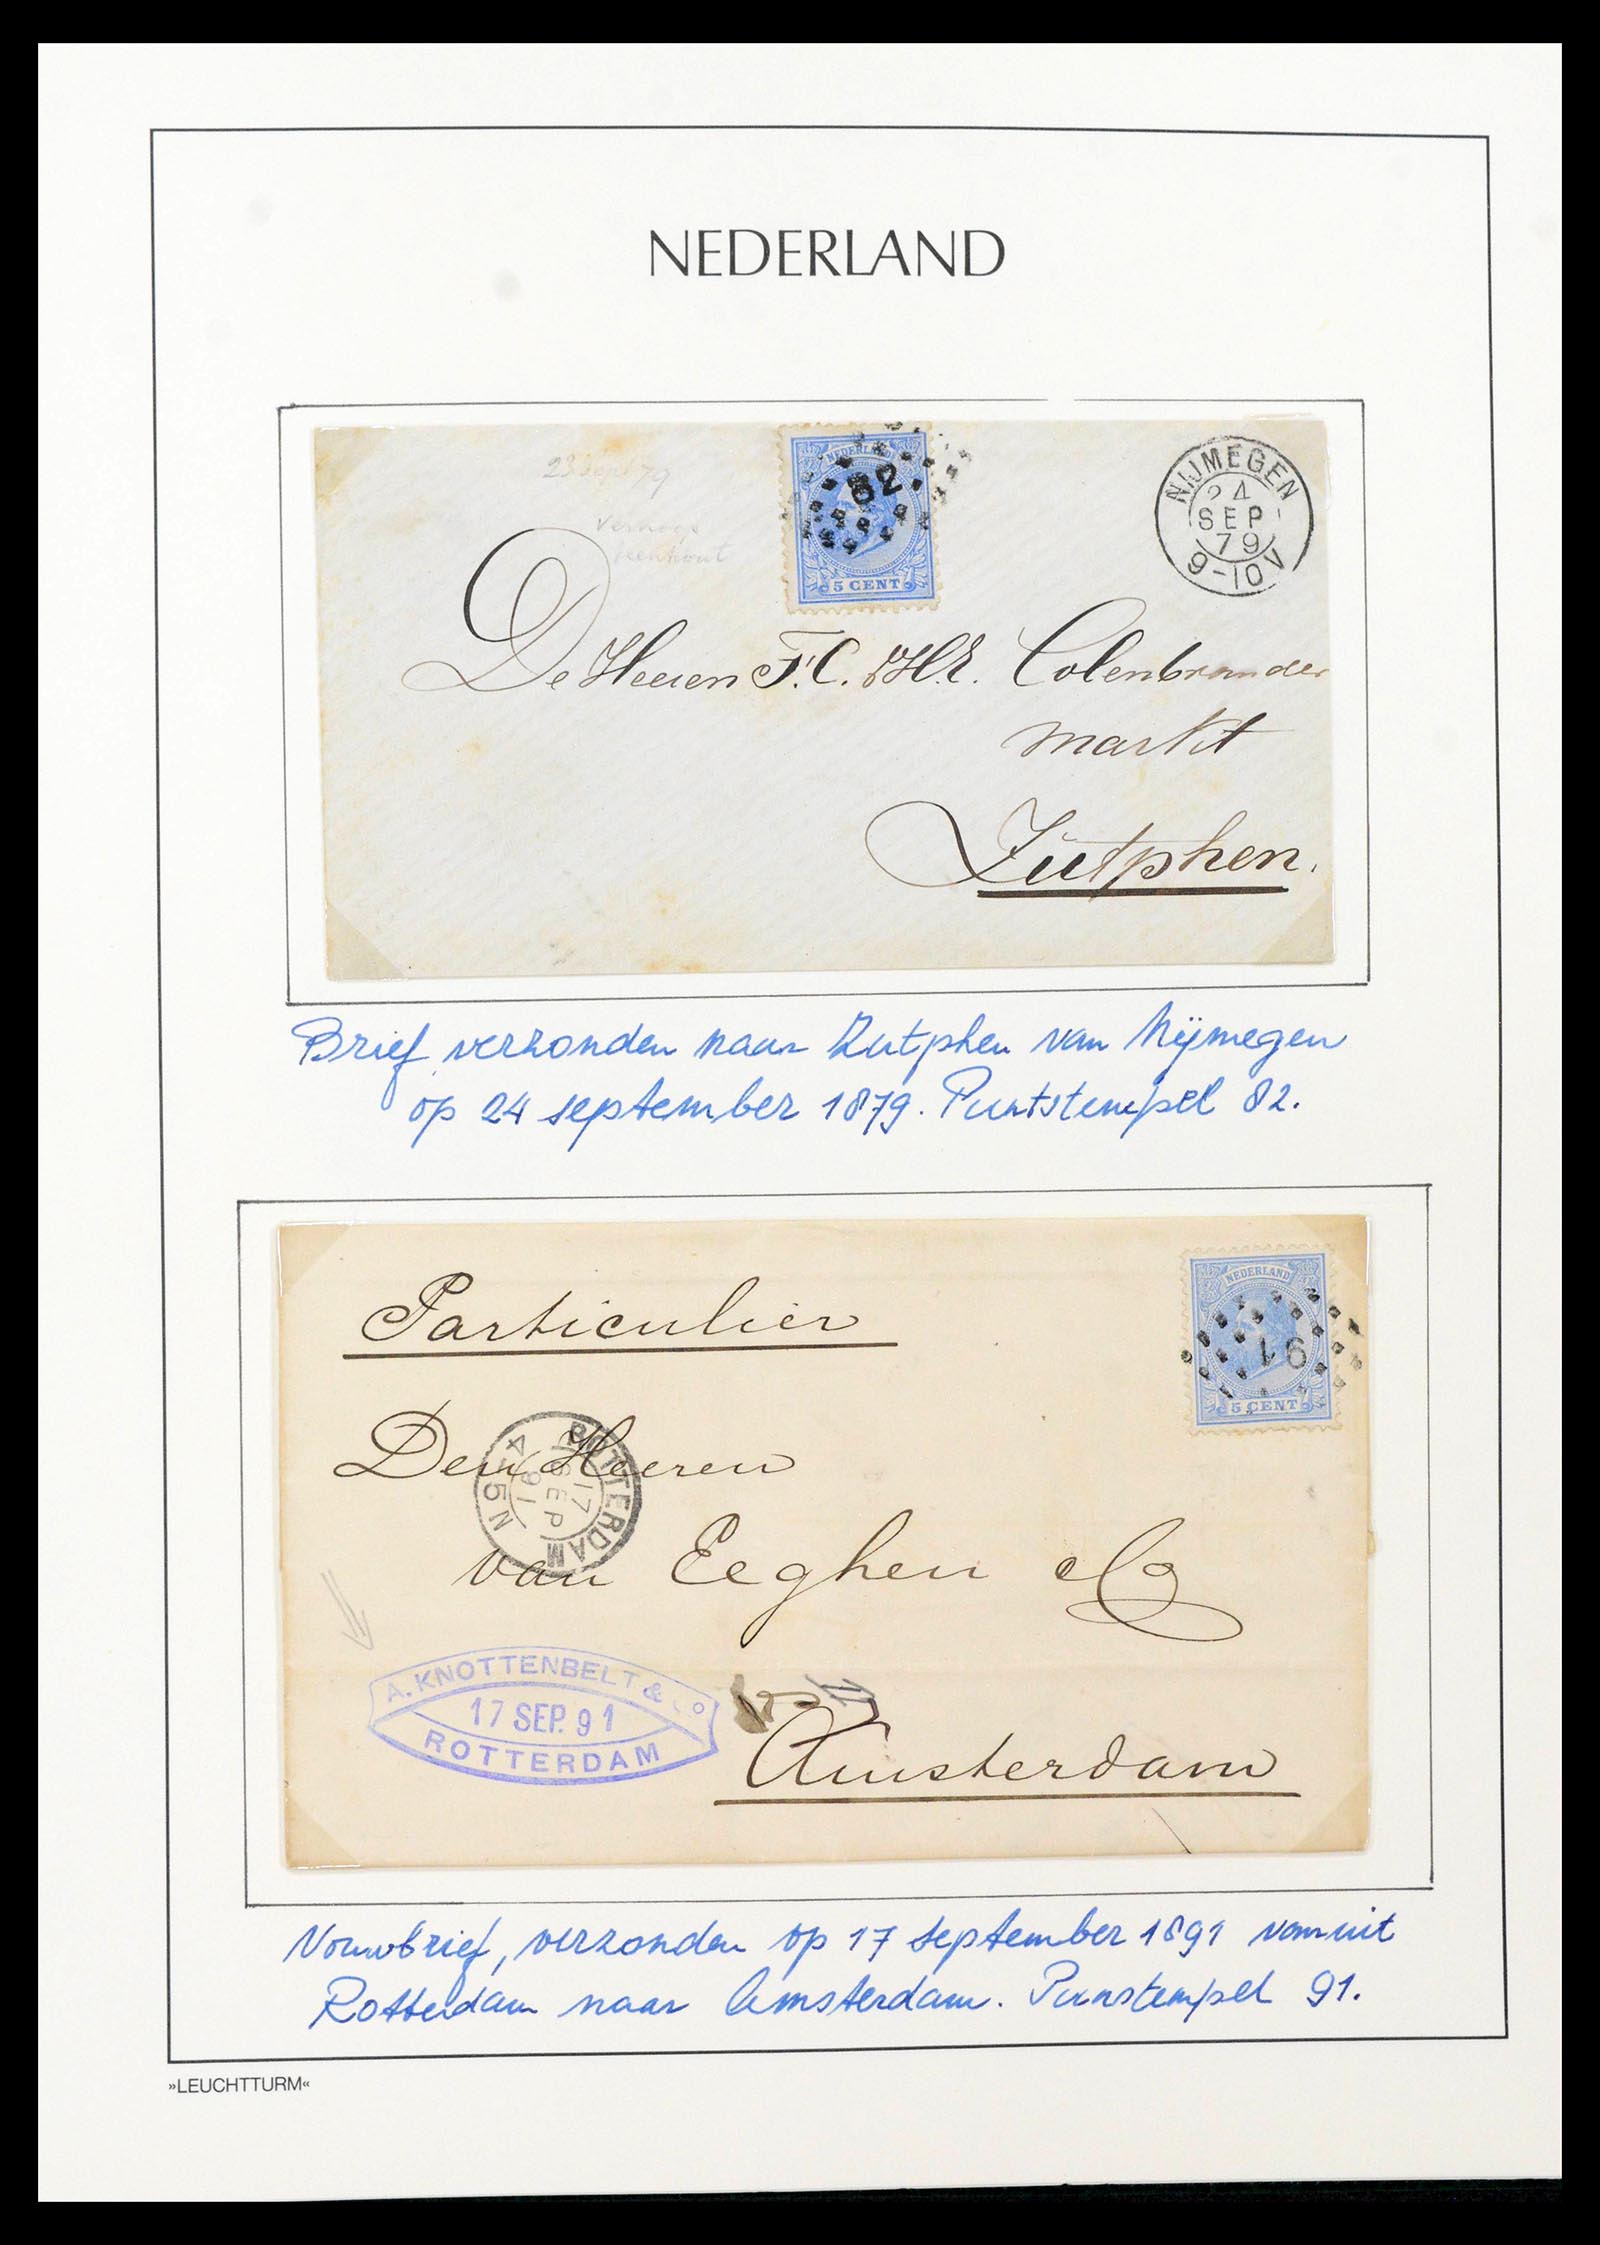 NEDERLAND
23 Sept 79
NEDERLAND
82
5 CENT
NIJMEGEN
24
SEP
79
9-10V
De Heeren F.C. & H.E. Colenbrander
Markt
Zutphen.
Brief verzonden naar Zutphen van Nijmegen
op 24 september 1879. Puntstempel 82.
Particulier
NEDERLAND
91
5 CENT
Den Heeren
ROTTERDAM
17
SEP
91
4-5N
van Eeghen & Co
A. KNOTTENBELT & Co
17 SEP. 91
ROTTERDAM
Amsterdam
Vouwbrief, verzonden op 17 september 1891 vanuit
Rotterdam naar Amsterdam. Punstempel 91.
»LEUCHTTURM«